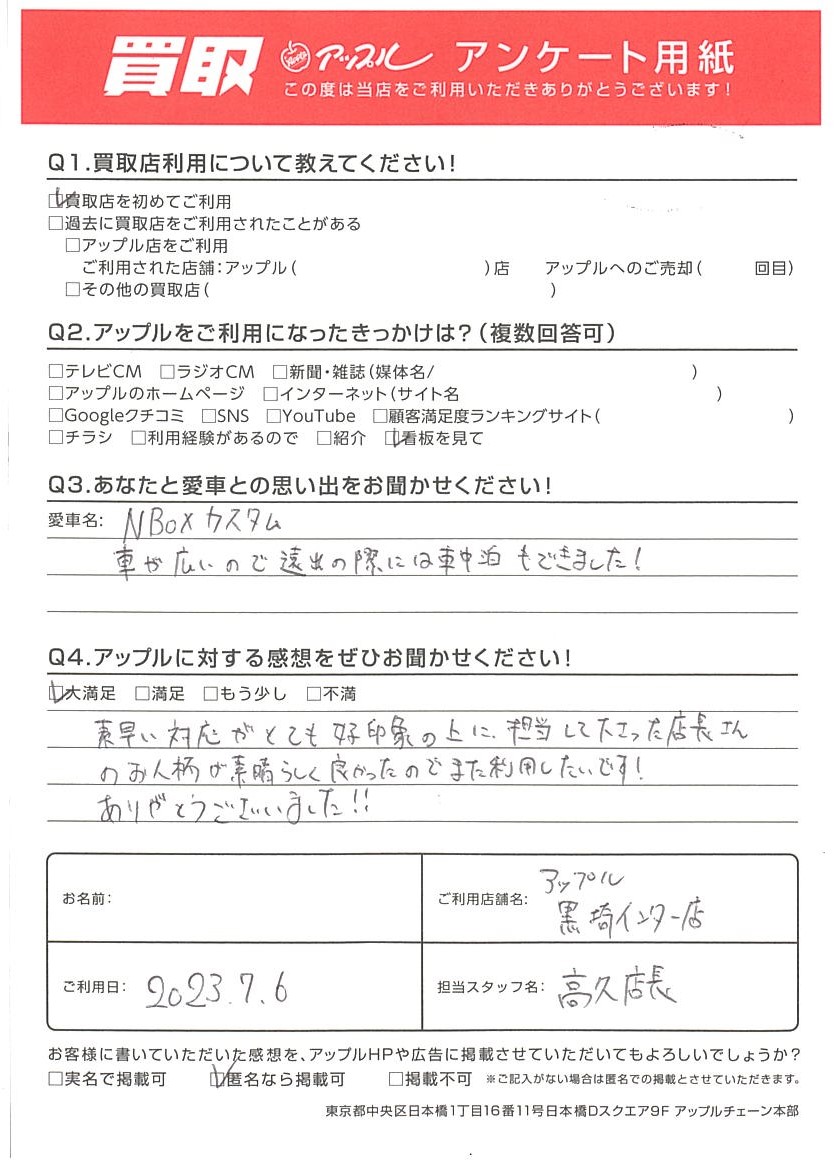 買取 アップル アンケート用紙
この度は当店をご利用いただきありがとうございます!
Q1.買取店利用について教えてください!
☑買取店を初めてご利用
□過去に買取店をご利用されたことがある
□アップル店をご利用
ご利用された店舗:アップル( )店 アップルへのご売却( 回目)
□その他の買取店( )
Q2.アップルをご利用になったきっかけは?(複数回答可)
□テレビCM □ラジオCM □新聞・雑誌(媒体名/ )
□アップルのホームページ □インターネット(サイト名 )
□Googleクチコミ □SNS □YouTube □顧客満足度ランキングサイト( )
□チラシ □利用経験があるので □紹介 ☑看板を見て
Q3.あなたと愛車との思い出をお聞かせください!
愛車名: NBOXカスタム
車が広いので遠出の際には車中泊もできました!
Q4.アップルに対する感想をぜひお聞かせください!
☑大満足 □満足 □もう少し □不満
素早い対応がとても好印象の上に、担当して下さった店長さん
のお人柄が素晴らしく良かったのでまた利用したいです!
ありがとうございました!!
お名前:
ご利用店舗名: アップル
黒埼インター店
ご利用日: 2023.7.6
担当スタッフ名: 高久店長
お客様に書いていただいた感想を、アップルHPや広告に掲載させていただいてもよろしいでしょうか?
□実名で掲載可 ☑匿名なら掲載可 □掲載不可 ※ご記入がない場合は匿名での掲載とさせていただきます。
東京都中央区日本橋1丁目16番11号日本橋Dスクエア9F アップルチェーン本部